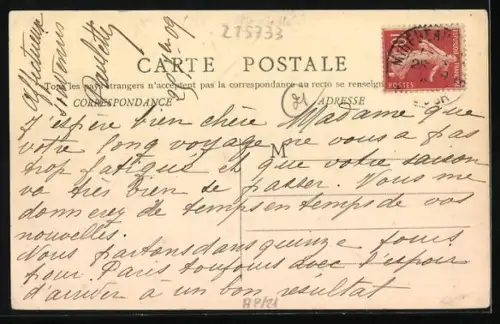 215733
CARTE POSTALE
Tous les pays étrangers n'acceptent pas la correspondance au recto se renseign
CORRESPONDANCE
ADRESSE
M
POSTES
J'espère bien chère Madame que
votre long voyage ne vous a pas
trop fatiguée et que votre saison
va très bien se passer. Vous me
donnerez de temps en temps de vos
nouvelles.
Nous partons dans quinze jours
pour Paris toujours avec l'espoir
d'arriver à un bon resultat
Affectueux
souvenirs
09